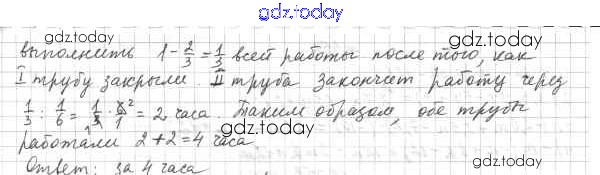 gdz.today
gdz.today gdz.today
выполнить 1 - 2/3 = 1/3 всей работы после того, как
I трубу закрыли. II труба закончит работу через
1/3 : 1/6 = 1/3 · 6/1 = 2 часа. Таким образом, обе трубы
gdz.today
работали 2+2=4 часа
gdz.today
Ответ: за 4 часа